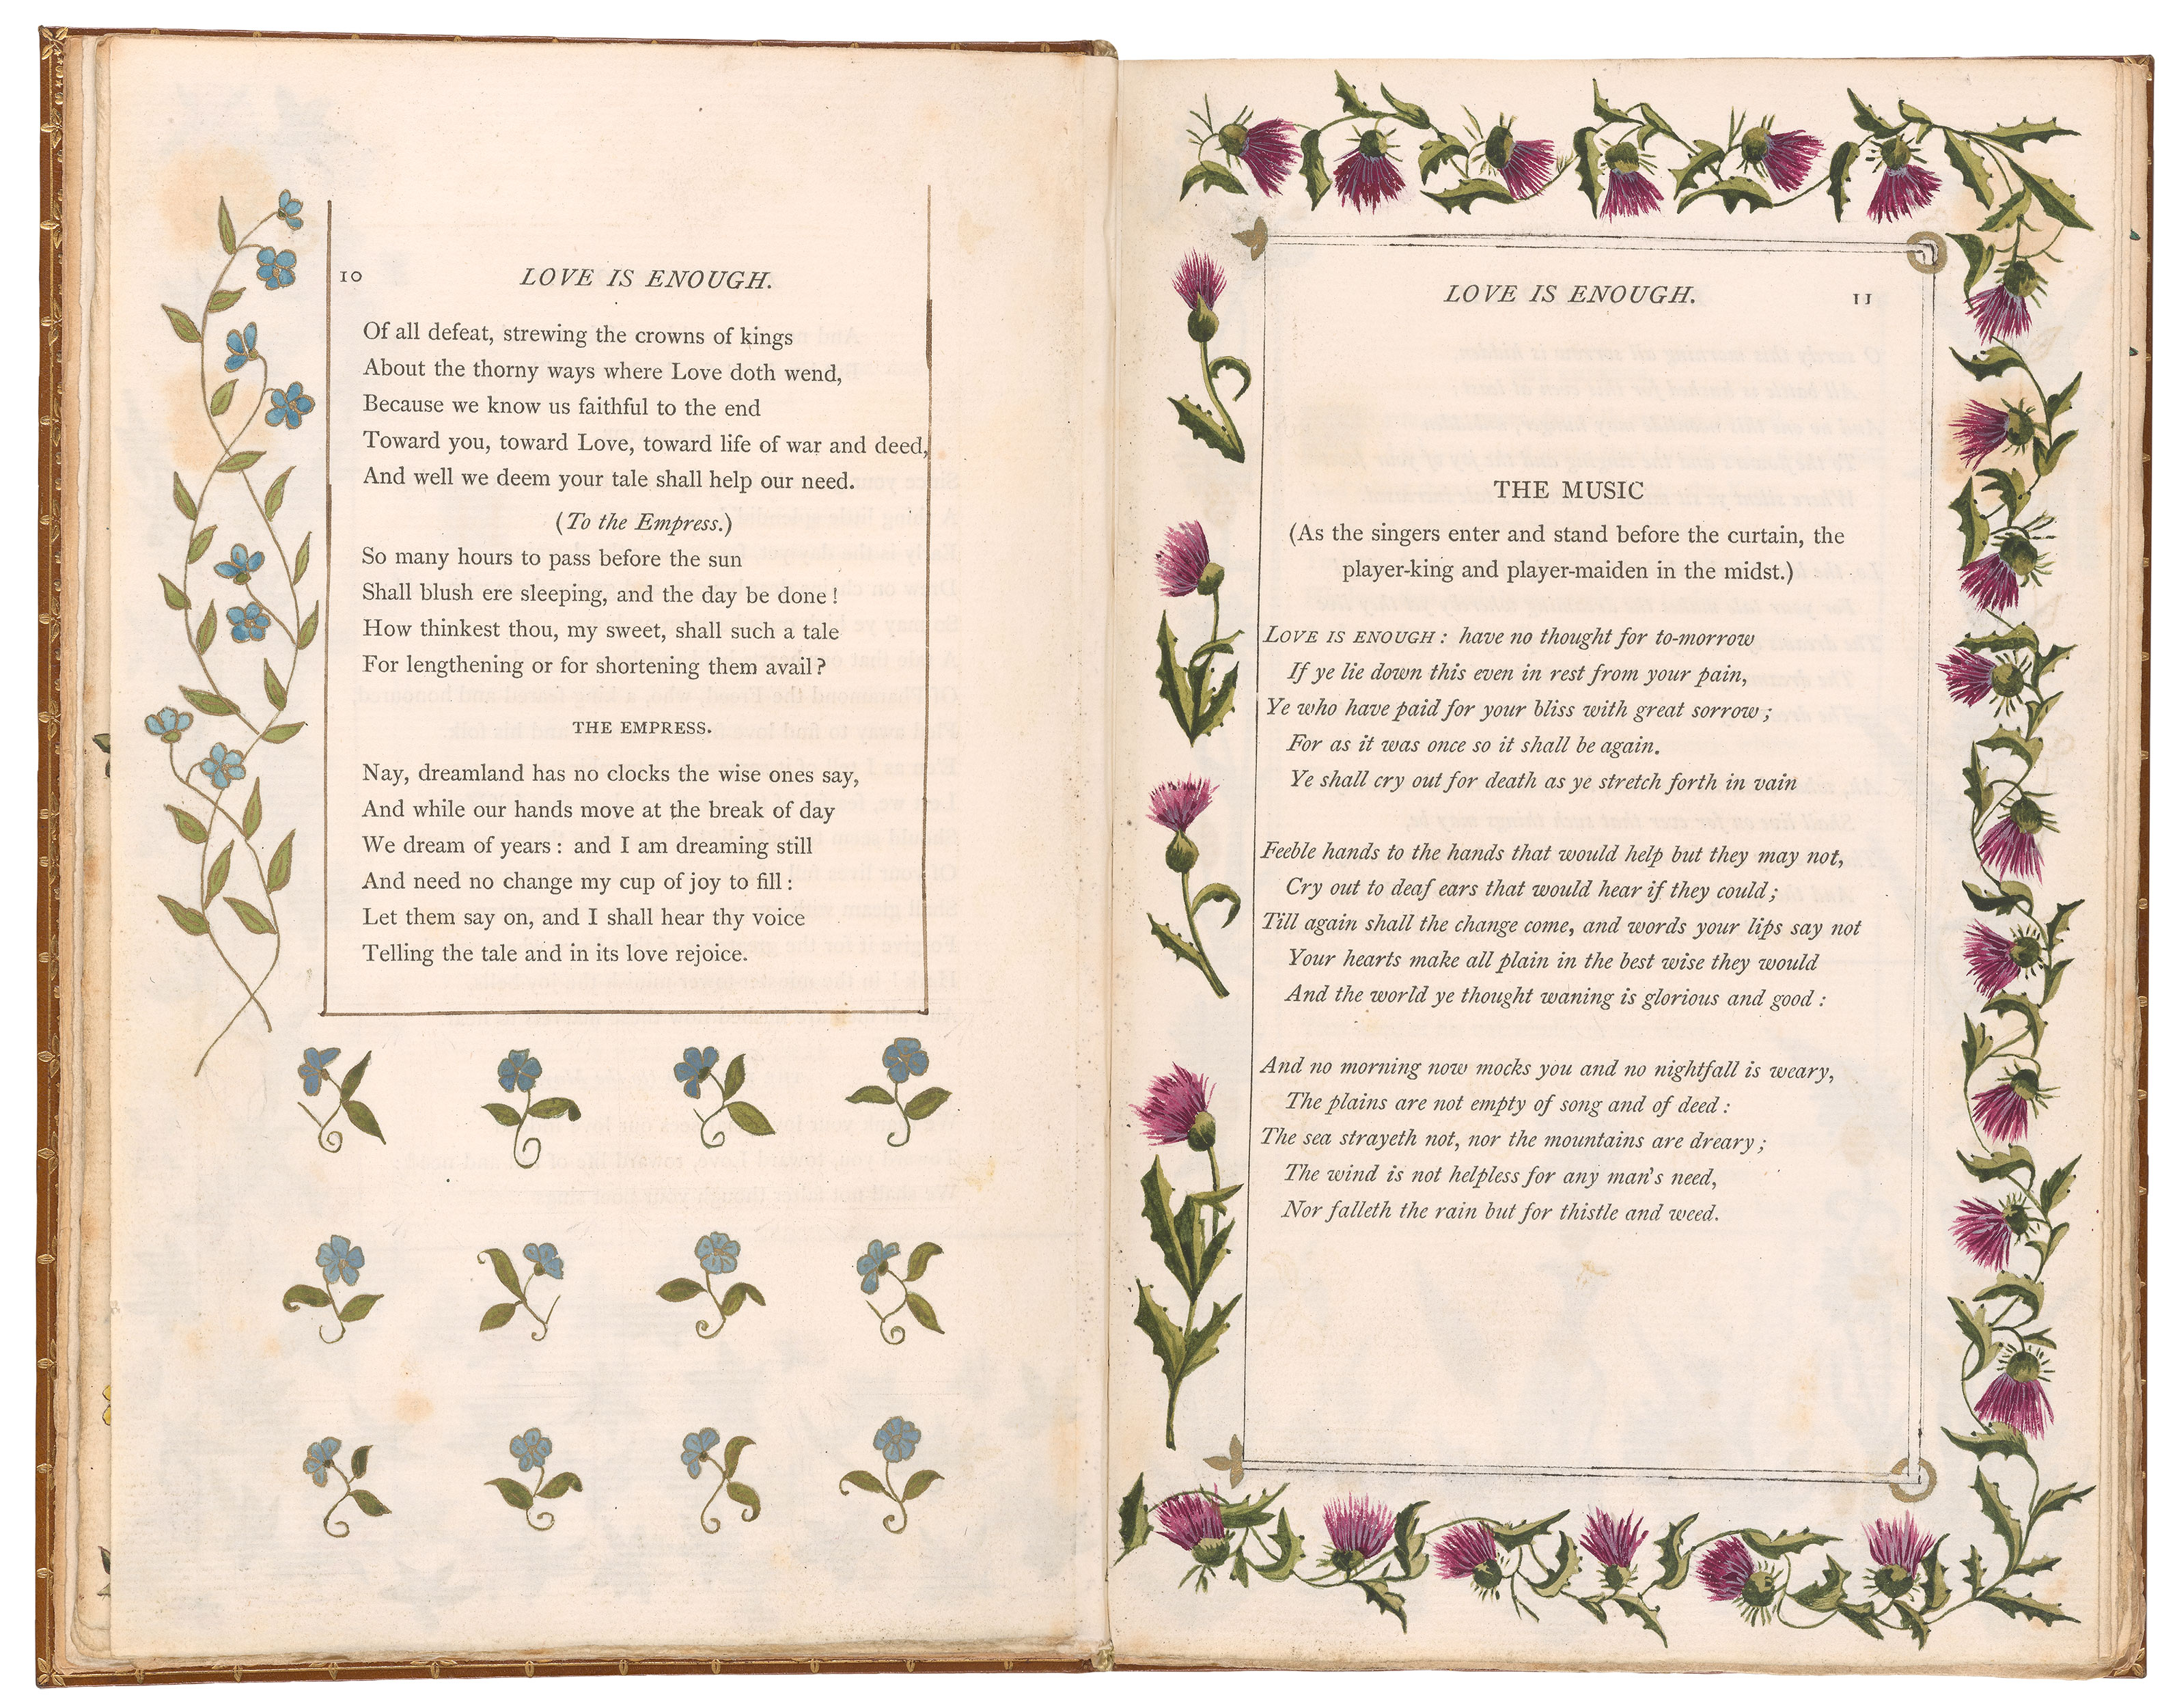 10
LOVE IS ENOUGH.
Of all defeat, strewing the crowns of kings
About the thorny ways where Love doth wend,
Because we know us faithful to the end
Toward you, toward Love, toward life of war and deed,
And well we deem your tale shall help our need.
(To the Empress.)
So many hours to pass before the sun
Shall blush ere sleeping, and the day be done!
How thinkest thou, my sweet, shall such a tale
For lengthening or for shortening them avail?
THE EMPRESS.
Nay, dreamland has no clocks the wise ones say,
And while our hands move at the break of day
We dream of years: and I am dreaming still
And need no change my cup of joy to fill:
Let them say on, and I shall hear thy voice
Telling the tale and in its love rejoice.
LOVE IS ENOUGH.
11
THE MUSIC
(As the singers enter and stand before the curtain, the
player-king and player-maiden in the midst.)
LOVE IS ENOUGH: have no thought for to-morrow
If ye lie down this even in rest from your pain,
Ye who have paid for your bliss with great sorrow;
For as it was once so it shall be again.
Ye shall cry out for death as ye stretch forth in vain
Feeble hands to the hands that would help but they may not,
Cry out to deaf ears that would hear if they could;
Till again shall the change come, and words your lips say not
Your hearts make all plain in the best wise they would
And the world ye thought waning is glorious and good:
And no morning now mocks you and no nightfall is weary,
The plains are not empty of song and of deed:
The sea strayeth not, nor the mountains are dreary;
The wind is not helpless for any man's need,
Nor falleth the rain but for thistle and weed.